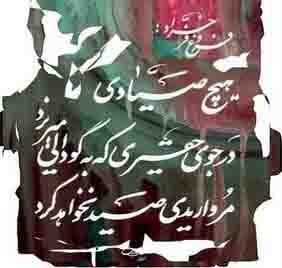 فروغ فرخزاد:
هیچ صیادی
در جوی حقیری که به گودالی میریزد
مرواریدی صید نخواهد کرد